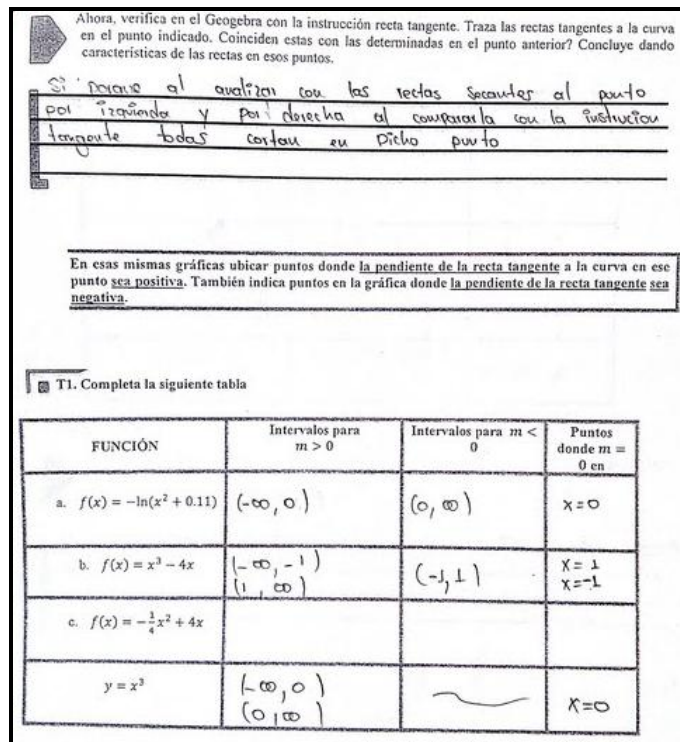 Ahora, verifica en el Geogebra con la instrucción recta tangente. Traza las rectas tangentes a la curva
en el punto indicado. Coinciden estas con las determinadas en el punto anterior? Concluye dando
características de las rectas en esos puntos.
Si porque al analizar con las rectas secantes al punto
por izquierda y por derecha al compararla con la instrucion
tangente todas cortan en Dicho punto
En esas mismas gráficas ubicar puntos donde la pendiente de la recta tangente a la curva en ese
punto sea positiva. También indica puntos en la gráfica donde la pendiente de la recta tangente sea
negativa.
T1. Completa la siguiente tabla
FUNCIÓN
Intervalos para
m > 0
Intervalos para m <
0
Puntos
donde m =
0 en
a. f(x) = −ln(x² + 0.11)
(-∞, 0)
(0, ∞)
x=0
b. f(x) = x³ − 4x
(-∞, -1)
(1, ∞)
(-1, 1)
x= 1
x=-1
c. f(x) = −1/4x² + 4x
y = x³
(-∞, 0)
(0, ∞)
x=0